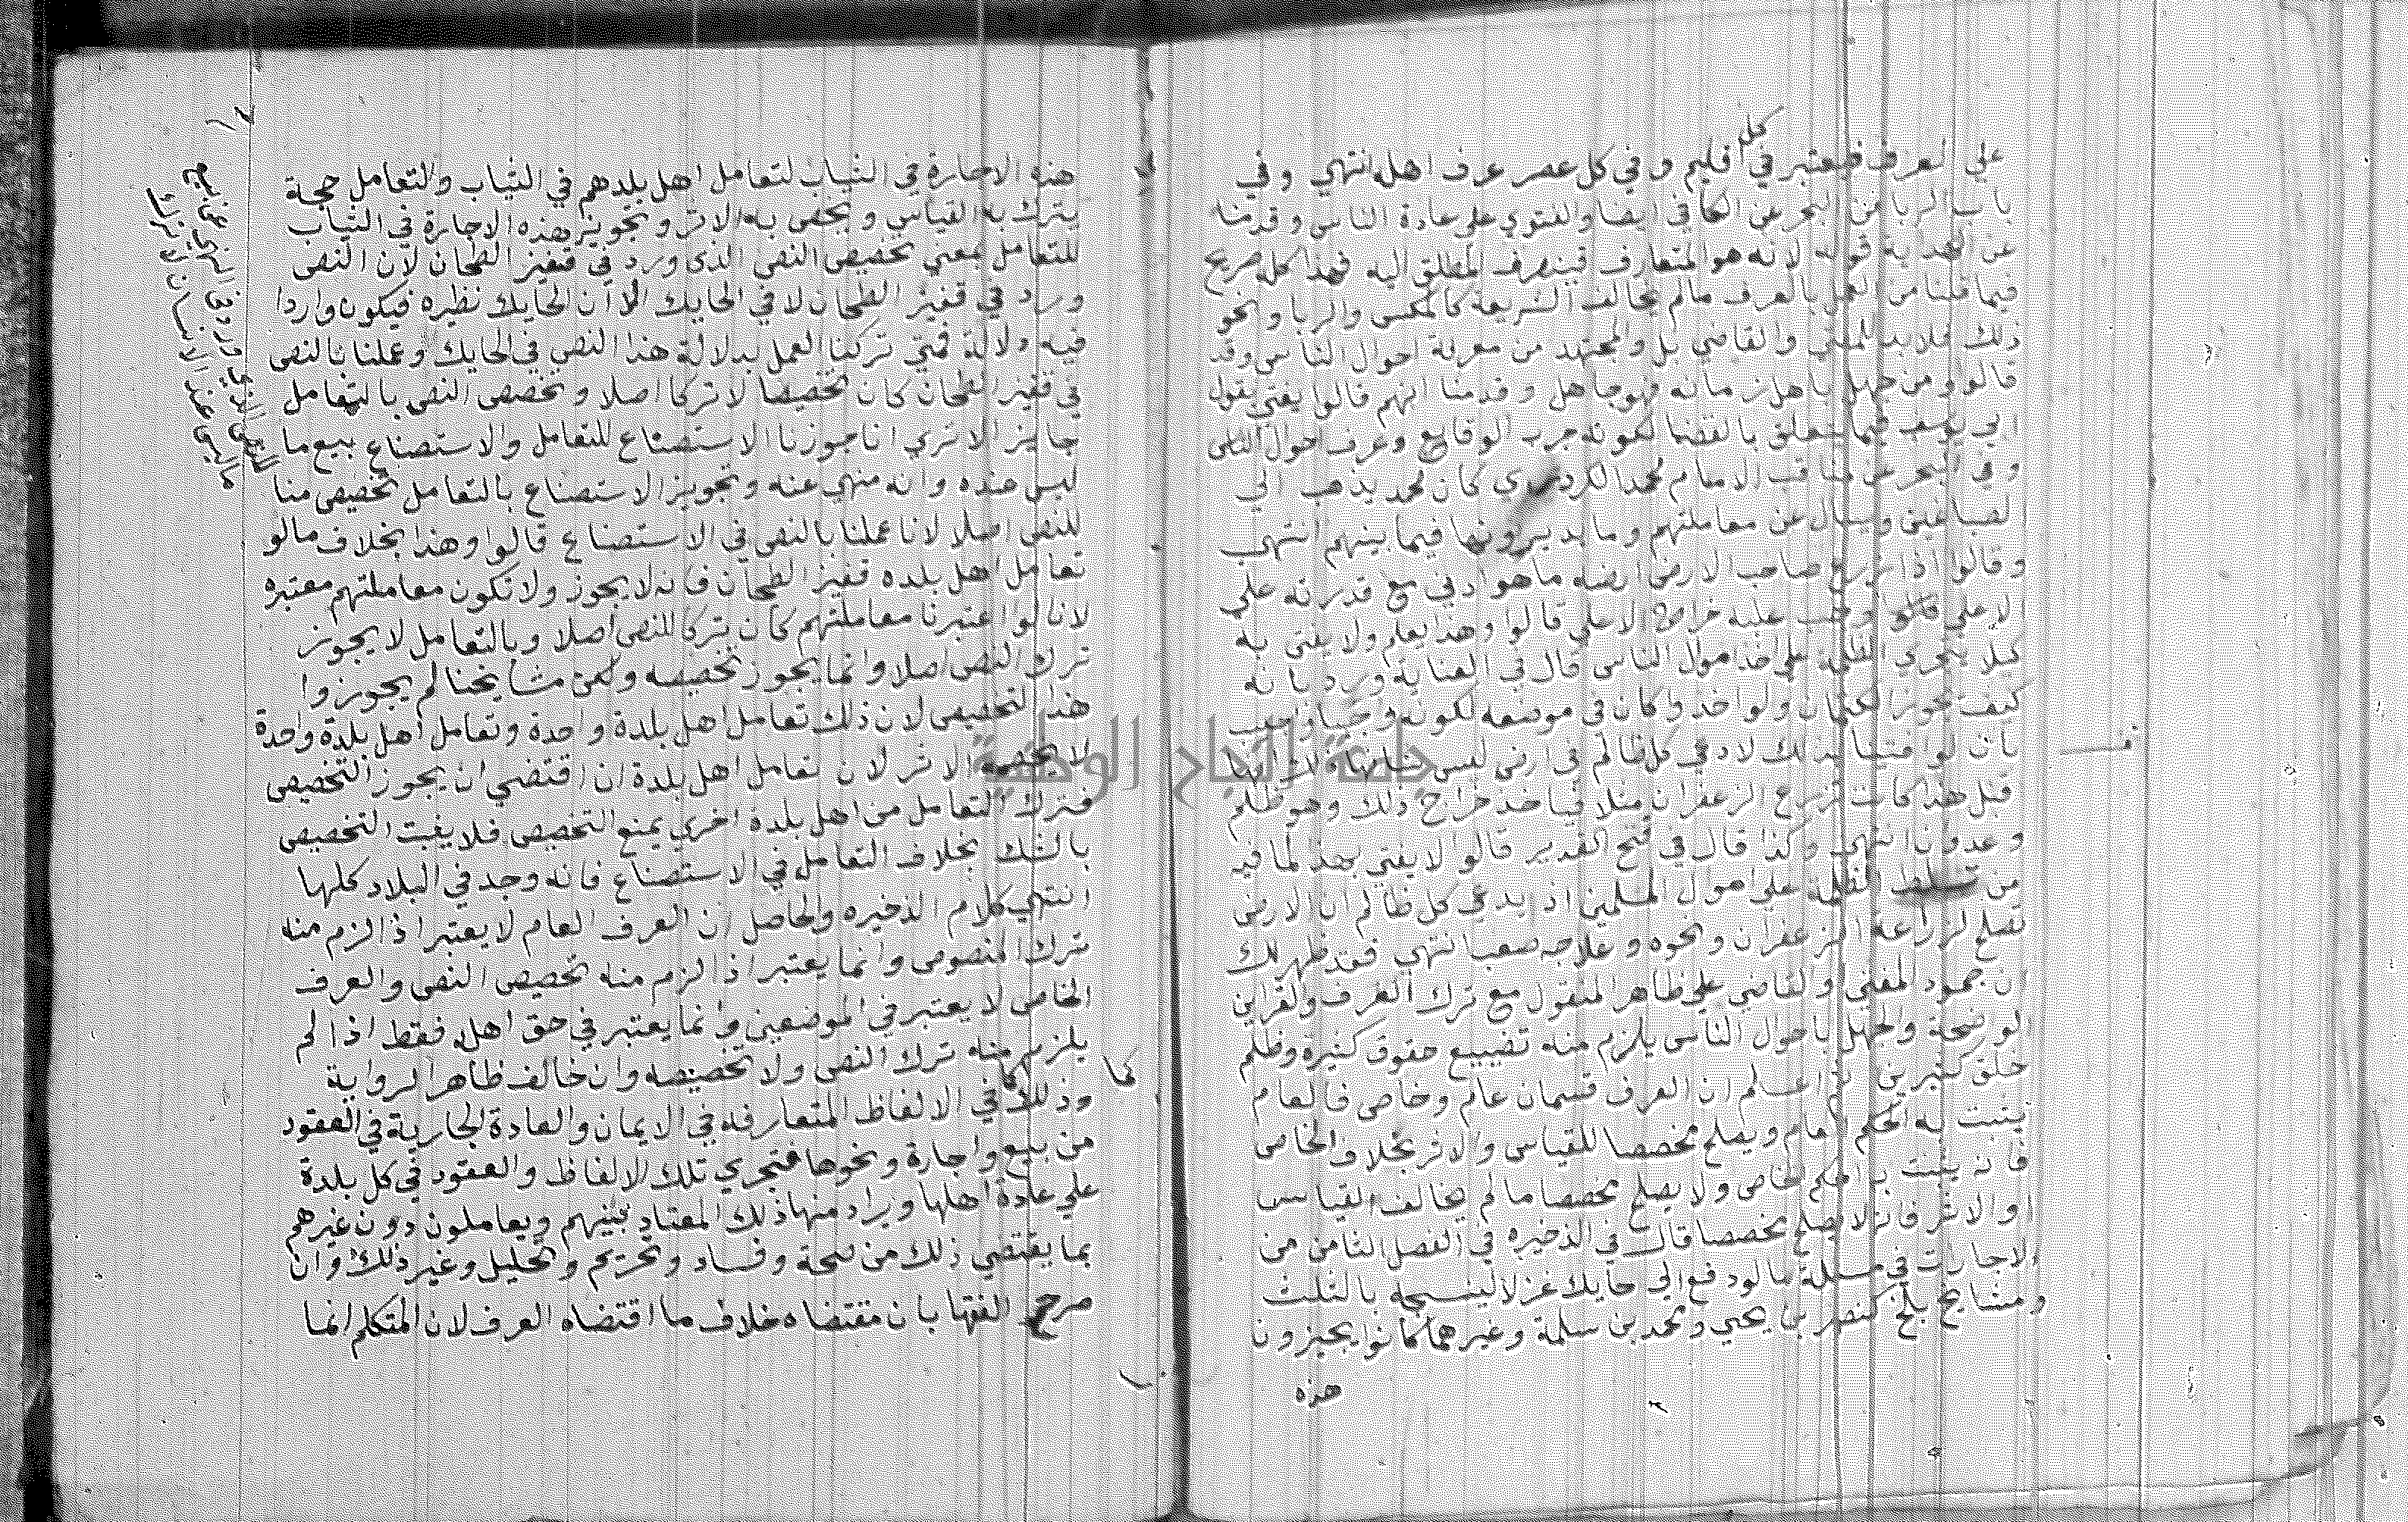 كل
علي العرف فيعتبر في اقليم وفي كل عصر عرف اهله انتهي وفي
باب الربا من البحر عن الكافي ايضا والفتوي علي عادة الناس وقدمنا
عن الهداية قوله لانه هو المتعارف فينصرف المطلق اليه فهذا كله صريح
فيما قلنا من العمل بالعرف مالم يخالف الشريعة كالمكس والربا ونحو
ذلك فلا بد للمفتي والقاضي بل والمجتهد من معرفة احوال الناس وقد
قالوا ومن جهل باهل زمانه فهو جاهل وقدمنا انهم قالوا يفتي بقول
ابي يوسف فيما يتعلق بالقضا لكونه جرب الوقايع وعرف احوال الناس
وفي البحر عن مناقب الامام محمد الكردري كان محمد يذهب الي
الصباغين ويسال عن معاملتهم وما يديرونها فيما بينهم انتهي
وقالوا اذا زرع صاحب الارض ارضه ما هو ادني مع قدرته علي
الاعلي وجب عليه خراج الاعلي قالوا وهذا يعلم ولا يفتي به
كيلا يتجري الظلمة علي اخذ اموال الناس قال في العناية ورد بانه
كيف يجوز الكتمان ولو اخذوا كان في موضعه لكونه واجبا واجيب
بان لو افتينا بذلك لادعي كل ظالم في ارض ليس شانها ذلك انها
قبل هذا كانت تزرع الزعفران مثلا فياخذ خراج ذلك وهو ظلم
وعدوان انتهي وكذا قال في فتح القدير قالوا لا يفتي بهذا لما فيه
من تسلط الظلمة علي اموال المسلمين اذ يدعي كل ظالم ان الارض
تصلح لزراعة الزعفران ونحوه وعلاجه صعب انتهي فقد ظهر لك
ان جمود المفتي والقاضي علي ظاهر المنقول مع ترك العرف والقراين
الواضحة والجهل باحوال الناس يلزم منه تضييع حقوق كثيرة وظلم
خلق كثيرين ثم اعلم ان العرف قسمان عام وخاص فالعام
يثبت به الحكم العام ويصلح مخصصا للقياس والاثر بخلاف الخاص
فانه يثبت به الحكم الخاص ولا يصلح مخصصا ما لم يخالف القياس
او الاثر فانه لا يصلح مخصصا قال في الذخيره في الفصل الثامن من
الاجارات في مسيلة ما لو دفع الي حايك غزلا لينسجه بالثلث
ومشايخ بلخ كنصر بن يحيي ومحمد بن سلمة وغيرهما كانوا يجيزون
هذه
هذه الاجارة في الثياب لتعامل اهل بلدهم في الثياب والتعامل حجة
يترك به القياس ويخص به الاثر وتجويز هذه الاجارة في الثياب
للتعامل بمعني تخصيص النص الذي ورد في قفيز الطحان لان النص
ورد في قفيز الطحان لا في الحايك الا ان الحايك نظيره فيكون واردا
فيه دلالة فمتي تركنا العمل بدلالة هذا النص في الحايك وعملنا بالنص
في قفيز الطحان كان تخصيصا لا تركا اصلا وتخصص النص بالتعامل
جايز الا تري انا جوزنا الاستصناع للتعامل والاستصناع بيع ما
ليس عنده وانه منهي عنه وتجويز الاستصناع بالتعامل تخصيص منا
للنص اصلا لانا عملنا بالنص في الاستصناع قالوا وهذا بخلاف مالو
تعامل اهل بلده قفيز الطحان فانه لا يجوز ولا تكون معاملتهم معتبره
لانا لو اعتبرنا معاملتهم كان تركا للنص اصلا وبالتعامل لا يجوز
ترك النص اصلا وانما يجوز تخصيصه ولكن مشايخنا لم يجوزوا
هذا التخصيص لان ذلك تعامل اهل بلدة واحدة وتعامل اهل بلدة واحدة
لا يخصص الاثر لان تعامل اهل بلدة ان اقتضي ان يجوز التخصيص
فترك التعامل من اهل بلدة اخري يمنع التخصيص فلا يثبت التخصيص
بالشك بخلاف التعامل في الاستصناع فانه وجد في البلاد كلها
انتهي كلام الذخيره والحاصل ان العرف العام لا يعتبر اذا لزم منه
ترك المنصوص وانما يعتبر اذا لزم منه تخصيص النص والعرف
الخاص لا يعتبر في الموضعين وانما يعتبر في حق اهله فقط اذا لم
يلزم منه ترك النص ولا تخصيصه وان خالف ظاهر الرواية
كما
وذلك كما في الالفاظ المتعارفه في الايمان والعادة الجارية في العقود
من بيع واجارة ونحوها فتجري تلك الالفاظ والعقود في كل بلدة
علي عادة اهلها ويراد منها ذلك المعتاد بينهم ويعاملون دون غيرهم
بما يقتضي ذلك من صحة وفساد وتحريم وتحليل وغير ذلك وان
صرح الفقها بان مقتضاه خلاف ما اقتضاه العرف لان المتكلم انما
جامعة النجاح الوطنية